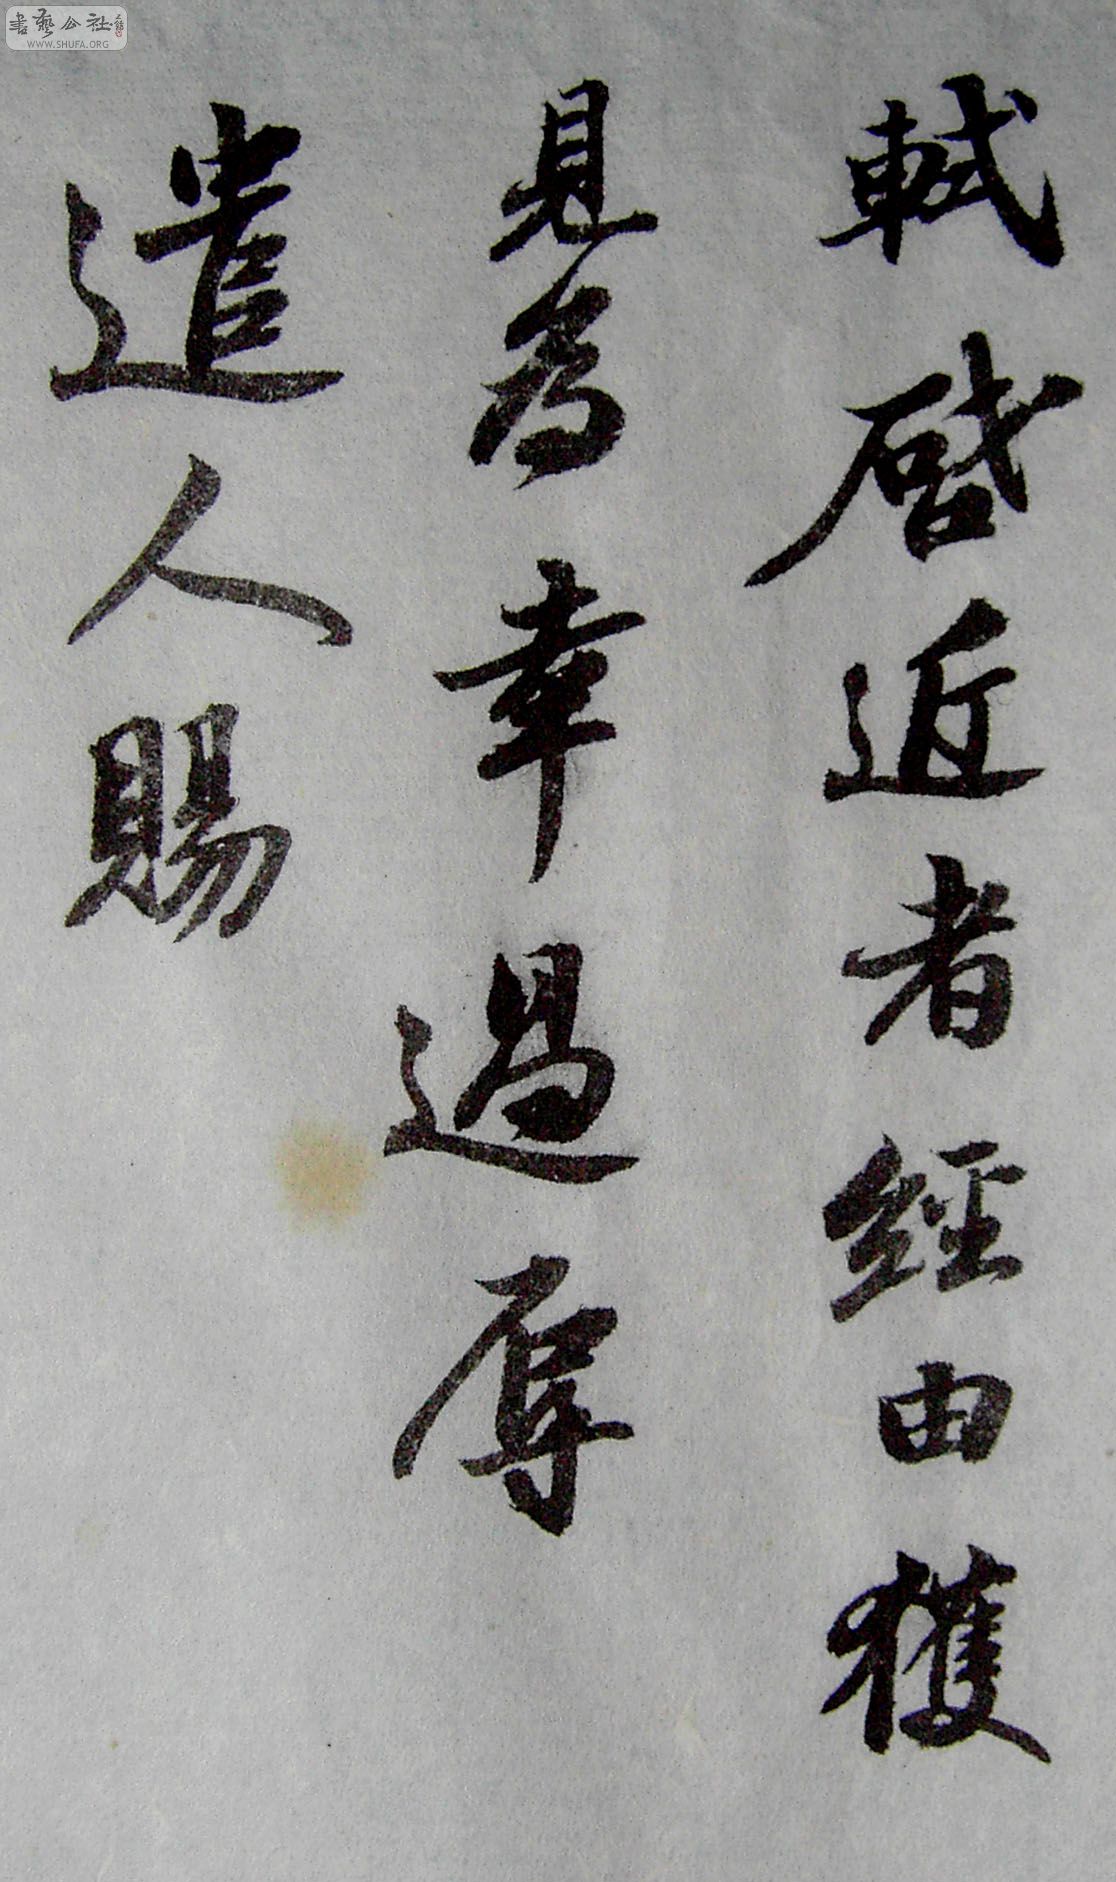 軾啓近者經由獲
見為幸過辱
遣人賜
書藝公社
WWW.SHUFA.ORG